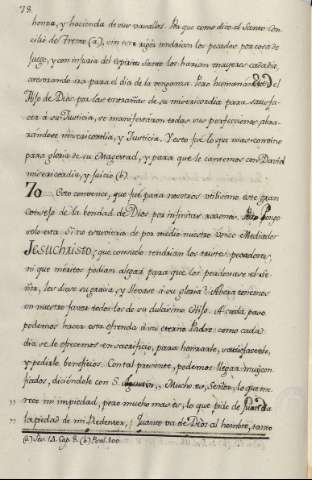 78.
honra, y hacienda de sus vasallos. Por que como dice el Santo Con-
cilio de Trento (a), sin
juego, y con injuria del Espiritu Santo los harian mayores cada dia,
atesorando ira para el dia de la venganza. Pero humanandose el
Hijo de Dios por las entrañas de su misericordia para satisfa-
cer a su Justicia, se manifestaron todas sus perfecciones, abra-
zandose misericordia, y Justicia. Y esto fué lo que mas convino
para gloria de su Magestad, y para que le cantemos con David
misericordia, y juicio (b).
70 Esto convence, que fué para nosotros utilisimo este gran
consejo de la bondad de Dios por infinitas razones. Pongo
solo esta. Si no estuviera de por medio nuestro Unico Mediador
Jesuchristo, que consuelo tendrian los tristes pecadores,
ni que meritos podian alegar para que los perdonase el Se-
ñor, les diese su gracia, y llevase á su gloria? Ahora tenemos
en nuestro favor todos los de su dulcisimo Hijo. A cada paso
podemos hacer esta ofrenda á su eterno Padre: como cada
dia se le ofrecemos en sacrificio, para honrarle, satisfacerle,
y pedirle beneficios. Con tal presente, podemos llegar muy con-
fiados, diciendole con S. Agustin: Mucho es, Señor, lo que me-
„ rece mi impiedad, pero mucho mas es, lo que pide de Justicia
„ la piedad de mi Redentor. Quanto va de Dios al hombre, tanto
(a) Ses. 14. Cap. 8. (b) Psal. 100.